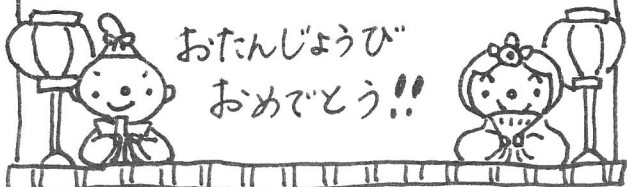 おたんじょうび
おめでとう!!